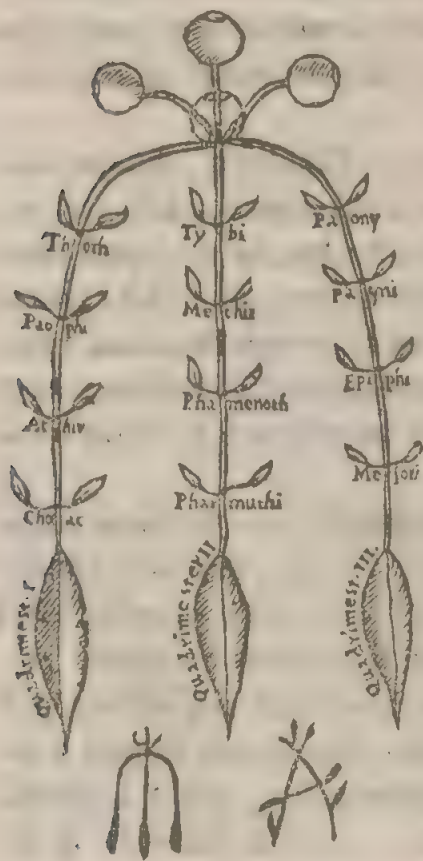 Thoth
Paophi
Athir
Choiac
Quadrimest. I
Tybi
Mechir
Phamenoth
Pharmuthi
Quadrimester II
Paony
Payni
Epiphi
Mesori
Quadrimest. III.